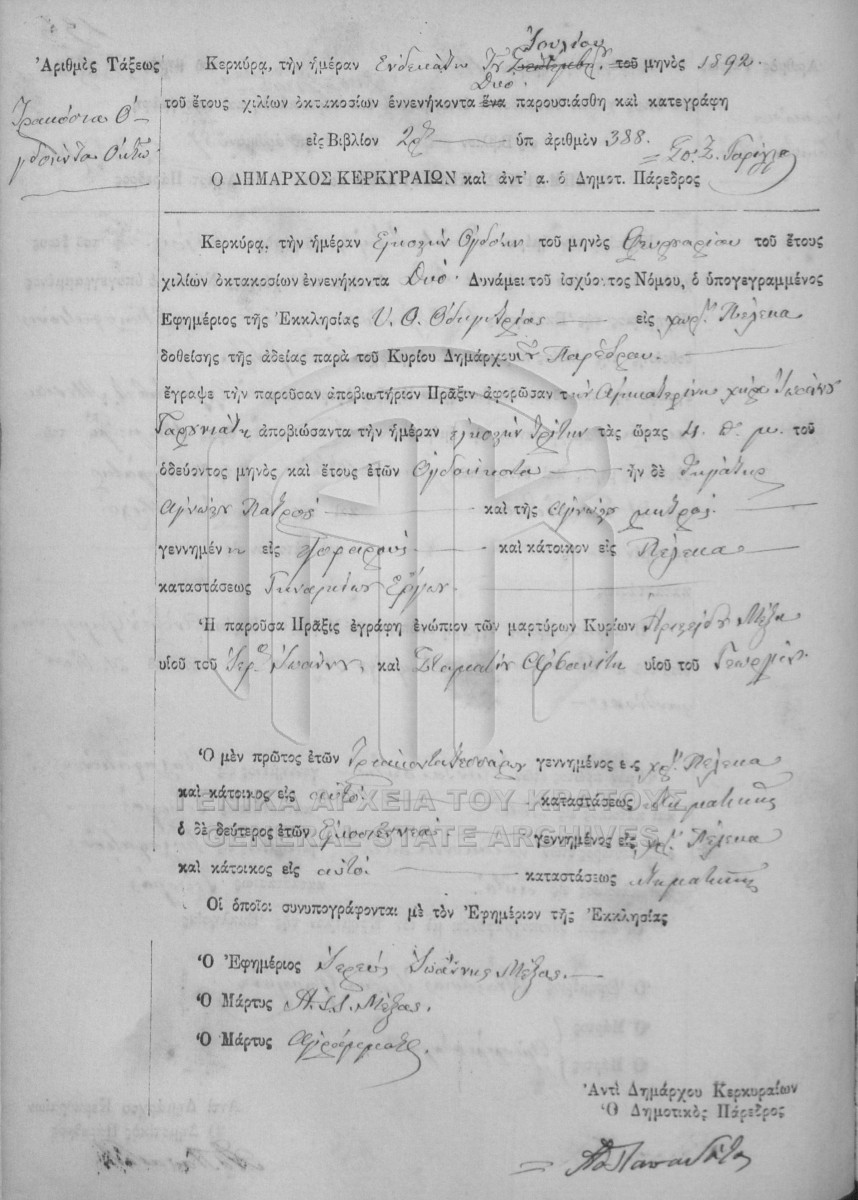 Ἀριθμὸς Τάξεως
Τριακόσια Ὀ-
γδοῆντα Ὀκτὼ
Ἰουλίου
Κερκύρᾳ, τὴν ἡμέραν Ἑνδεκάτην τοῦ μηνὸς 1892.
Δυο
τοῦ ἔτους χιλίων ὀκτακοσίων ἐννενήκοντα ἕνα παρουσιάσθη καὶ κατεγράφη
εἰς Βιβλίον ὑπ ἀριθμὸν 388.
Ο ΔΗΜΑΡΧΟΣ ΚΕΡΚΥΡΑΙΩΝ καὶ ἀντ' α. ὁ Δημοτ. Πάρεδρος
Κερκύρᾳ, τὴν ἡμέραν Εἰκοστὴν Ὀγδόην τοῦ μηνὸς Φευρουαρίου τοῦ ἔτους
χιλίων ὀκτακοσίων ἐννενήκοντα Δυό. Δυνάμει τοῦ ἰσχύοντος Νόμου, ὁ ὑπογεγραμμένος
Ἐφημέριος τῆς Ἐκκλησίας Υ. Θ. Ὁδηγητρίας εἰς χωρ. Πέλεκα
δοθείσης τῆς ἀδείας παρὰ τοῦ Κυρίου Δημάρχου Παρέδρου.
ἔγραψε τὴν παροῦσαν ἀποβιωτήριον Πρᾶξιν ἀφορῶσαν τὴν Αἰκατερίνη χήρα Ἰωάννου
Γαρυνιάτη ἀποβιώσαντα τὴν ἡμέραν εἰκοστὴν τρίτην τὰς ὥρας 4. π. μ. τοῦ
ὁδεύοντος μηνὸς καὶ ἔτους ἐτῶν Ὀγδοήκοντα ἦν δὲ
Ἀγνώστου Πατρὸς καὶ τῆς Ἀγνώστου μητρός.
γεννημέν εἰς καὶ κάτοικον εἰς Πέλεκα
καταστάσεως Γυναικείων Ἔργων.
Ἡ παροῦσα Πρᾶξις ἐγράφη ἐνώπιον τῶν μαρτύρων Κυρίων Ἀριστείδην Μέξα
υἱοῦ τοῦ Ἰερ. Ἰωάννου, καὶ Σταμάτην Ἀρβανίτη υἱοῦ τοῦ Γεωργίου.
Ὁ μὲν πρῶτος ἐτῶν Τριακοντατεσσάρων γεννημένος εἰς χω. Πέλεκα
καὶ κάτοικος εἰς αὐτό. καταστάσεως Κτηματικῆς
ὁ δὲ δεύτερος ἐτῶν Εἰκοσιεννέα γεννημένος εἰς χω. Πέλεκα
καὶ κάτοικος εἰς αὐτό. καταστάσεως Κτηματικῆς
Οἱ ὁποῖοι συνυπογράφονται μὲ τὸν Ἐφημέριον τῆς Ἐκκλησίας
Ὁ Ἐφημέριος Ἱερεὺς Ἰωάννης Μέξας.
Ὁ Μάρτυς Μέξας.
Ὁ Μάρτυς Ἀγράμματος.
Ἀντὶ Δημάρχου Κερκυραίων
Ὁ Δημοτικὸς Πάρεδρος
ΓΕΝΙΚΑ ΑΡΧΕΙΑ ΤΟΥ ΚΡΑΤΟΥΣ
GENERAL STATE ARCHIVES